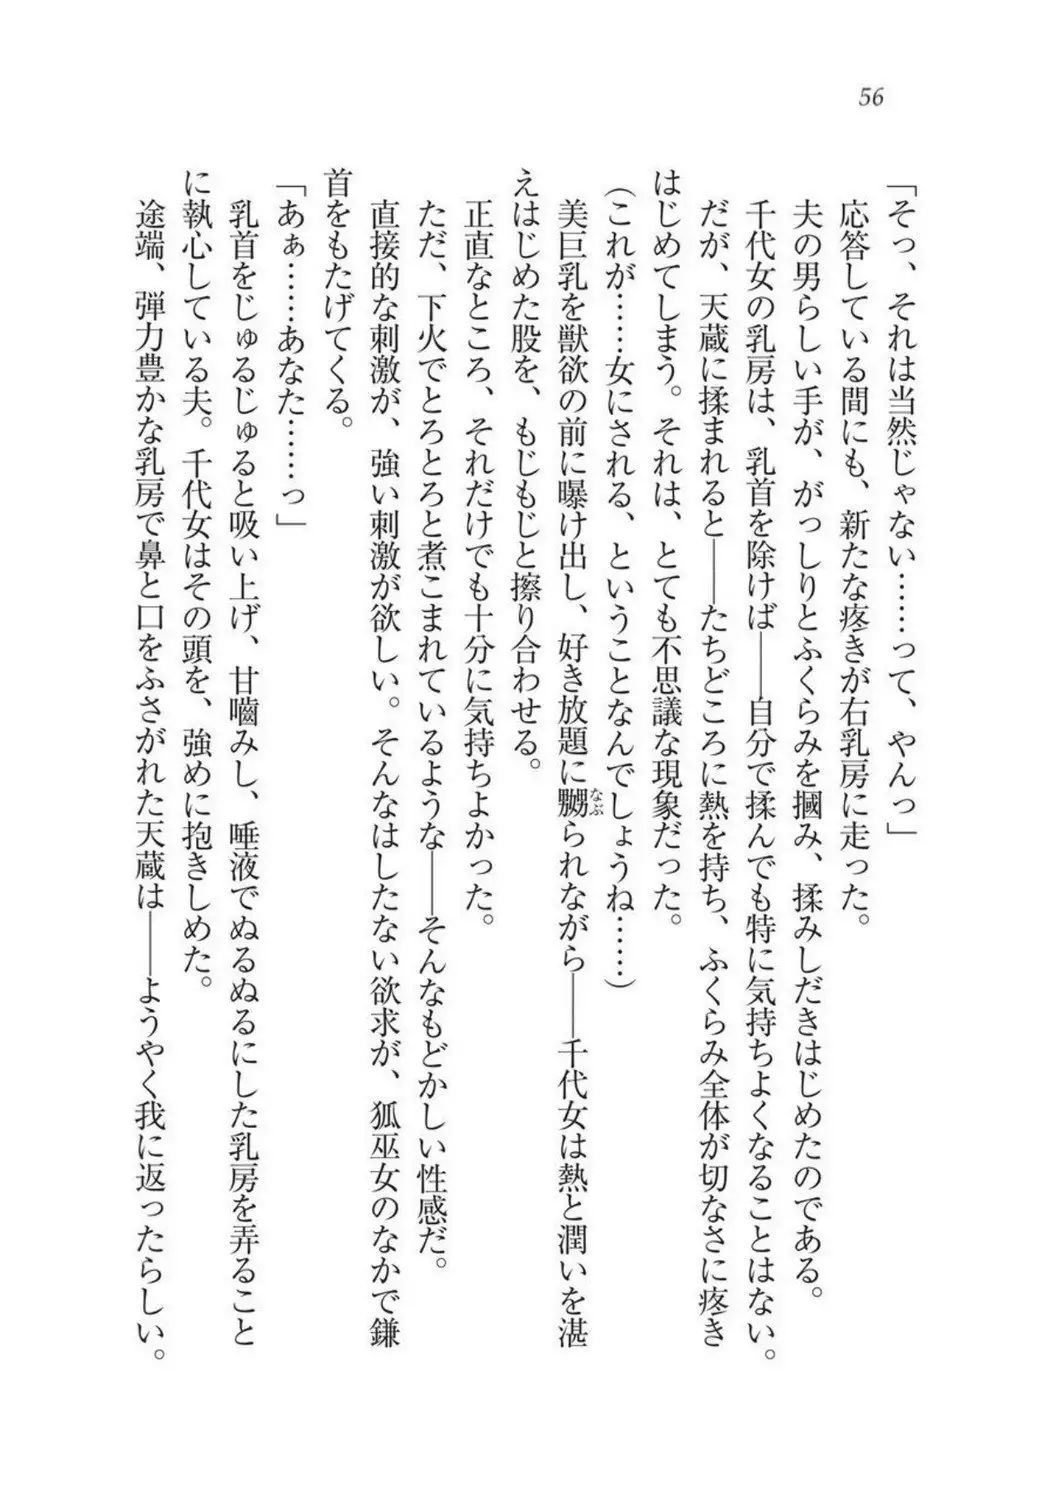 56
「そっ、それは当然じゃない……って、やんっ」
応答している間にも、新たな疼きが右乳房に走った。
夫の男らしい手が、がっしりとふくらみを摑み、揉みしだきはじめたのである。
千代女の乳房は、乳首を除けば――自分で揉んでも特に気持ちよくなることはない。
だが、天蔵に揉まれると――たちどころに熱を持ち、ふくらみ全体が切なさに疼き
はじめてしまう。それは、とても不思議な現象だった。
（これが……女にされる、ということなんでしょうね……）
美巨乳を獣欲の前に曝け出し、好き放題に嬲られながら――千代女は熱と潤いを湛
なぶ
えはじめた股を、もじもじと擦り合わせる。
正直なところ、それだけでも十分に気持ちよかった。
ただ、下火でとろとろと煮こまれているような――そんなもどかしい性感だ。
直接的な刺激が、強い刺激が欲しい。そんなはしたない欲求が、狐巫女のなかで鎌
首をもたげてくる。
「あぁ……あなた……っ」
乳首をじゅるじゅると吸い上げ、甘嚙みし、唾液でぬるぬるにした乳房を弄ること
に執心している夫。千代女はその頭を、強めに抱きしめた。
途端、弾力豊かな乳房で鼻と口をふさがれた天蔵は――ようやく我に返ったらしい。